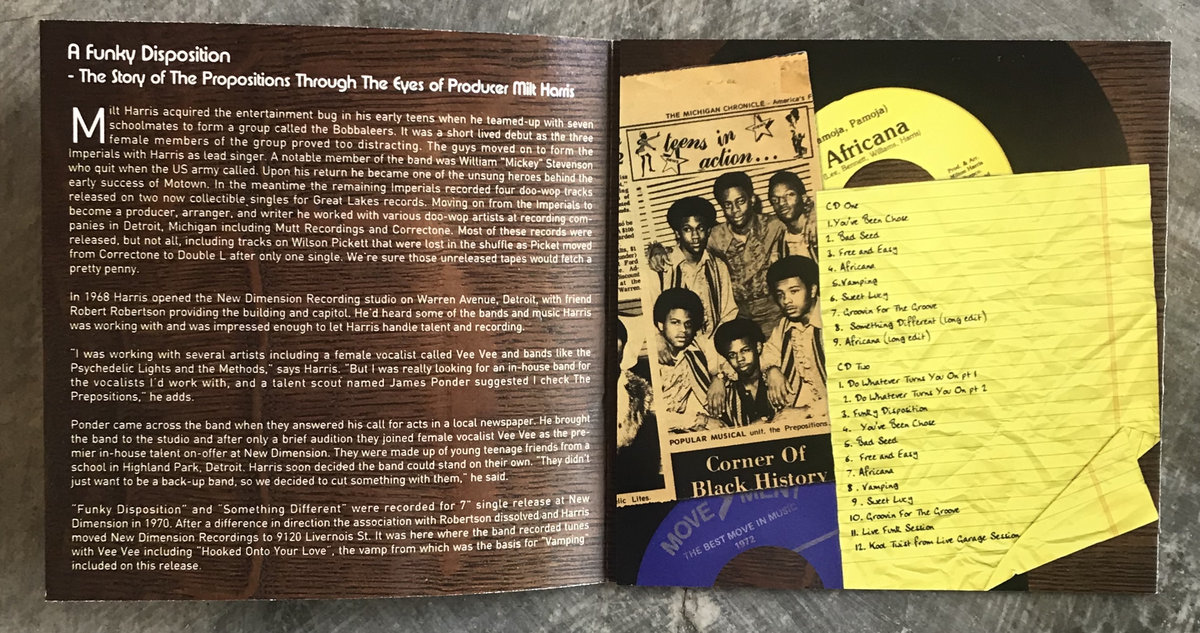 A Funky Disposition
- The Story of The Propositions Through The Eyes of Producer Milt Harris
Milt Harris acquired the entertainment bug in his early teens when he teamed-up with seven
schoolmates to form a group called the Bobbaleers. It was a short lived debut as the three
female members of the group proved too distracting. The guys moved on to form the
Imperials with Harris as lead singer. A notable member of the band was William "Mickey" Stevenson
who quit when the US army called. Upon his return he became one of the unsung heroes behind the
early success of Motown. In the meantime the remaining Imperials recorded four doo-wop tracks
released on two now collectible singles for Great Lakes records. Moving on from the Imperials to
become a producer, arranger, and writer he worked with various doo-wop artists at recording com-
panies in Detroit, Michigan including Mutt Recordings and Correctone. Most of these records were
released, but not all, including tracks on Wilson Pickett that were lost in the shuffle as Picket moved
from Correctone to Double L after only one single. We're sure those unreleased tapes would fetch a
pretty penny.
In 1968 Harris opened the New Dimension Recording studio on Warren Avenue, Detroit, with friend
Robert Robertson providing the building and capitol. He'd heard some of the bands and music Harris
was working with and was impressed enough to let Harris handle talent and recording.
"I was working with several artists including a female vocalist called Vee Vee and bands like the
Psychedelic Lights and the Methods," says Harris. "But I was really looking for an in-house band for
the vocalists I'd work with, and a talent scout named James Ponder suggested I check The
Prepositions," he adds.
Ponder came across the band when they answered his call for acts in a local newspaper. He brought
the band to the studio and after only a brief audition they joined female vocalist Vee Vee as the pre-
mier in-house talent on-offer at New Dimension. They were made up of young teenage friends from a
school in Highland Park, Detroit. Harris soon decided the band could stand on their own. "They didn't
just want to be a back-up band, so we decided to cut something with them," he said.
"Funky Disposition" and "Something Different" were recorded for 7" single release at New
Dimension in 1970. After a difference in direction the association with Robertson dissolved and Harris
moved New Dimension Recordings to 9120 Livernois St. It was here where the band recorded tunes
with Vee Vee including "Hooked Onto Your Love", the vamp from which was the basis for "Vamping"
included on this release.
THE MICHIGAN CHRONICLE - America's F
teens in
action...
be
$100
$1
Ford
Ad-
iscount
at the
Warren.
POPULAR MUSICAL unit, the Prepositions
lic Lites.
Corner Of
Black History
MOVEMENT
THE BEST MOVE IN MUSIC
1972
amoja, Pamoja)
Africana
(Lee, Bennett, Williams, Harris)
Prod. & Arr.
Milton Harris
CD One
1. You've Been Chose
2. Bad Seed
3. Free and Easy
4. Africana
5. Vamping
6. Sweet Lucy
7. Groovin For The Groove
8. Something Different (long edit)
9. Africana (long edit)
CD Two
1. Do Whatever Turns You On pt 1
2. Do Whatever Turns You On pt 2
3. Funky Disposition
4. You've Been Chose
5. Bad Seed
6. Free and Easy
7. Africana
8. Vamping
9. Sweet Lucy
10. Groovin For The Groove
11. Live Funk Session
12. Kool Twist from Live Garage Session